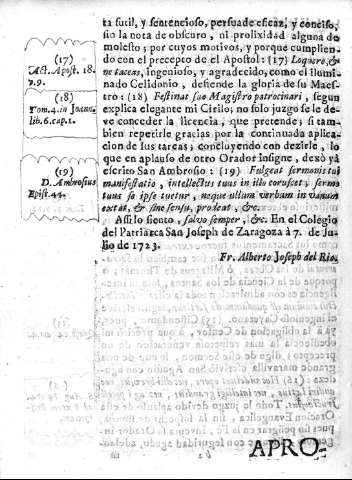 ta sutil, y sentencioso, persuade eficaz, y conciso,
sin la nota de obscuro, ni prolixidad alguna de
molesto; por cuyos motivos, y porque cumplien-
do con el precepto de el Apostol: (17) Loquere, &
ne taceas, ingenioso, y agradecido, como el ilumi-
nado Celidonio, defiende la gloria de su Maes-
tro: (18) Festinat suo Magistro patrocinari, segun
explica elegante mi Cirilo; no solo juzgo se le de-
ve conceder la licencia, que pretende; si tam-
bien repetirle gracias por la continuada aplica-
cion de sus tareas; concluyendo con dezirle, lo
que en aplauso de otro Orador insigne, dexò yà
escrito San Ambrosio: (19) Fulgeat sermonis tui
manifestatio, intellectus tuus in illo coruscet; sermo
tuus se ipse tuetur, neque ullum verbum in vanum
extat, & sine sensu, prodeat, &c.
Assi lo siento, salvo semper, &c. En el Colegio
del Patriarca San Joseph de Zaragoza à 7. de Ju-
lio de 1723.
Fr. Alberto Joseph del Rio.
(17)
Act. Apost. 18.
v. 9.
(18)
Tom. 4. in Joann.
lib. 6. cap. 1.
(19)
D. Ambrosius
Epist. 44.
APRO-